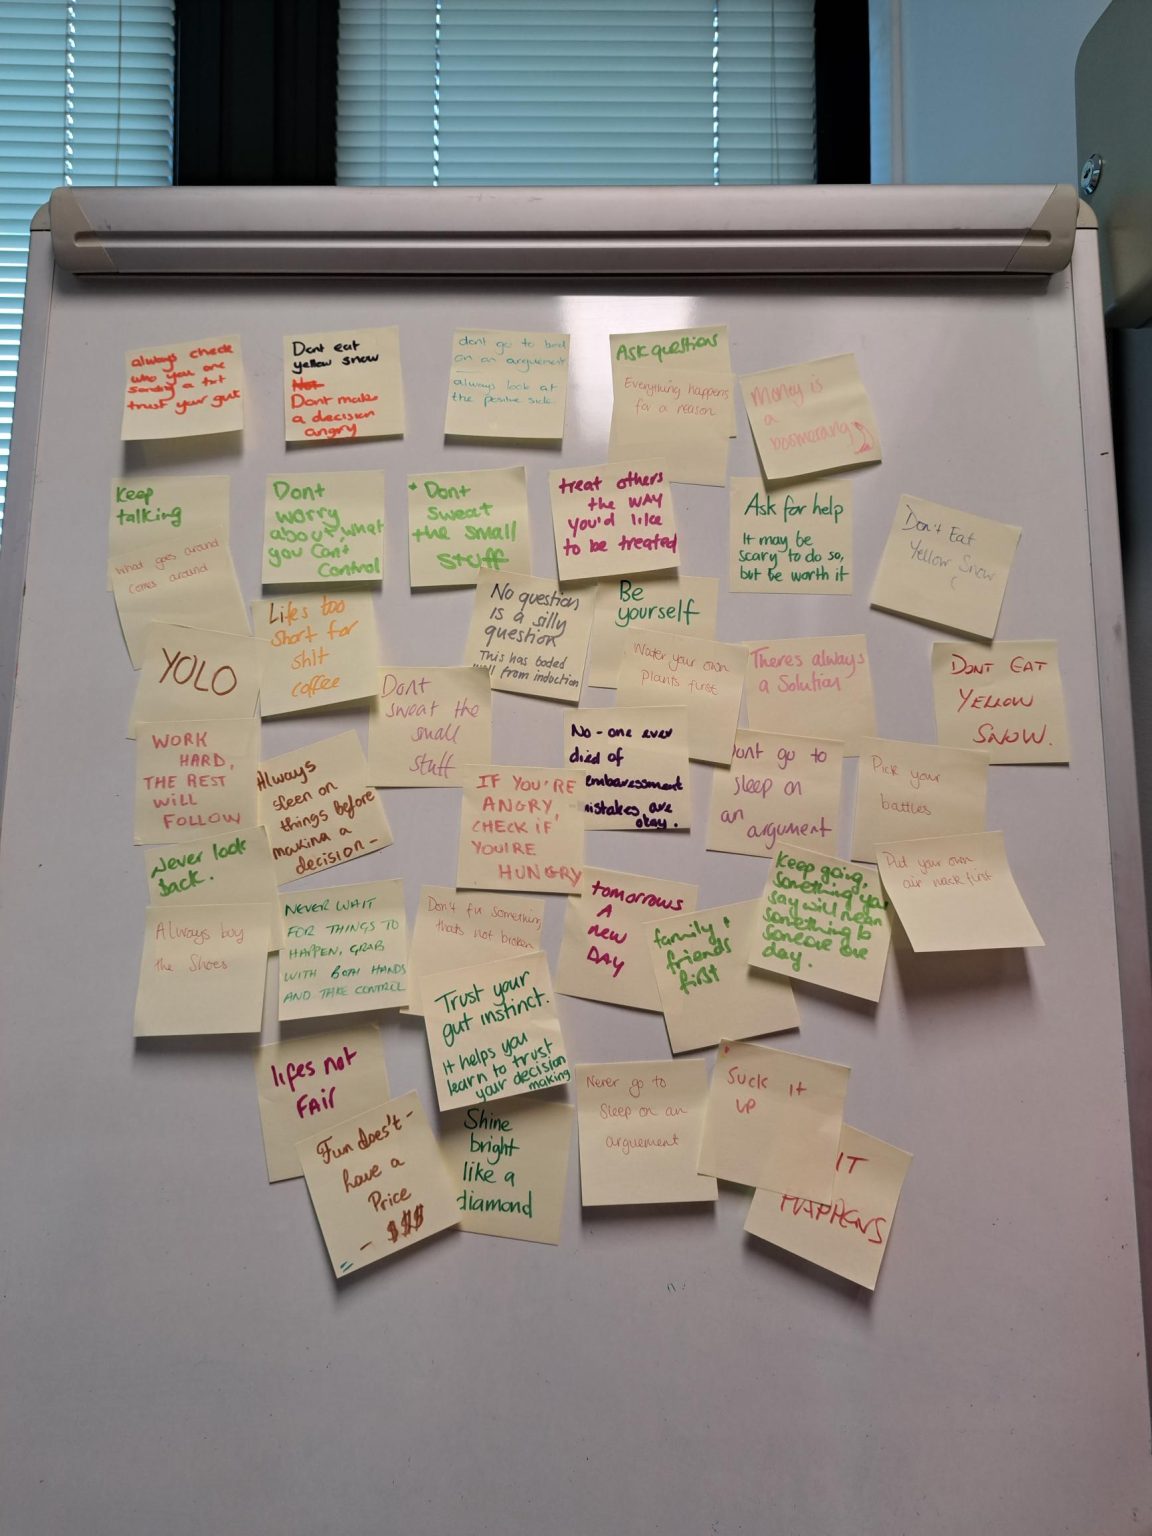 always check
who you are
sending a txt
trust your gut
Dont eat
yellow snow
Not
Dont make
a decision
angry
dont go to bed
on an arguement
always look at
the positive side.
Ask questions
Everything happens
for a reason
Money is
a
boomerang
Keep
talking
What goes around
comes around
Dont
worry
about what
you Can't
Control
* Dont
sweat
the small
stuff
treat others
the WAY
you'd like
to be treated
Ask for help
It may be
scary to do so,
but be worth it
Don't Eat
Yellow Snow
YOLO
Lifes too
short for
shit
coffee
No question
is a silly
question
This has boded
well from induction
Be
yourself
Water your own
plants first
Theres always
a Solution
DONT EAT
YELLOW
SNOW.
WORK
HARD,
THE REST
WILL
FOLLOW
Always
sleen on
things before
making a
decision-
Dont
sweat the
small
stuff
IF YOU'RE
ANGRY,
CHECK IF
YOU'RE
HUNGRY
No-one ever
died of
embaressment
mistakes are
okay.
Dont go to
sleep on
an
argument
Pick your
battles
Never look
back.
Always buy
the Shoes
NEVER WAIT
FOR THINGS TO
HAPPEN, GRAB
WITH BOTH HANDS
AND TAKE CONTROL
Don't fix something
thats not broken
Trust your
gut instinct.
It helps you
learn to trust
your decision
making
tomorrows
A
new
DAY
family +
friends
first
Keep going,
something you
say will mean
something to
someone one
day.
Put your own
air mask first
lifes not
FAIR
Fun does't -
have a
Price
- $$$
Shine
bright
like a
diamond
Never go to
Sleep on an
arguement
Suck it
up
IT
HAPPENS